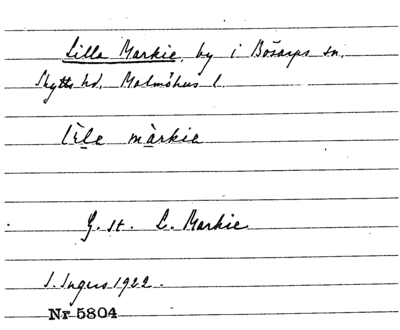 Lilla Markie, by i Bösarps sn.
Skytts hd. Malmöhus l.
lìle màrkie
G. st. L. Markie
S. Ingers 1922.
Nr 5804